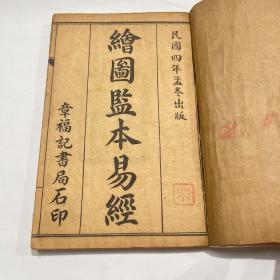 民國四年孟冬出版
繪圖監本易經
章福記書局石印